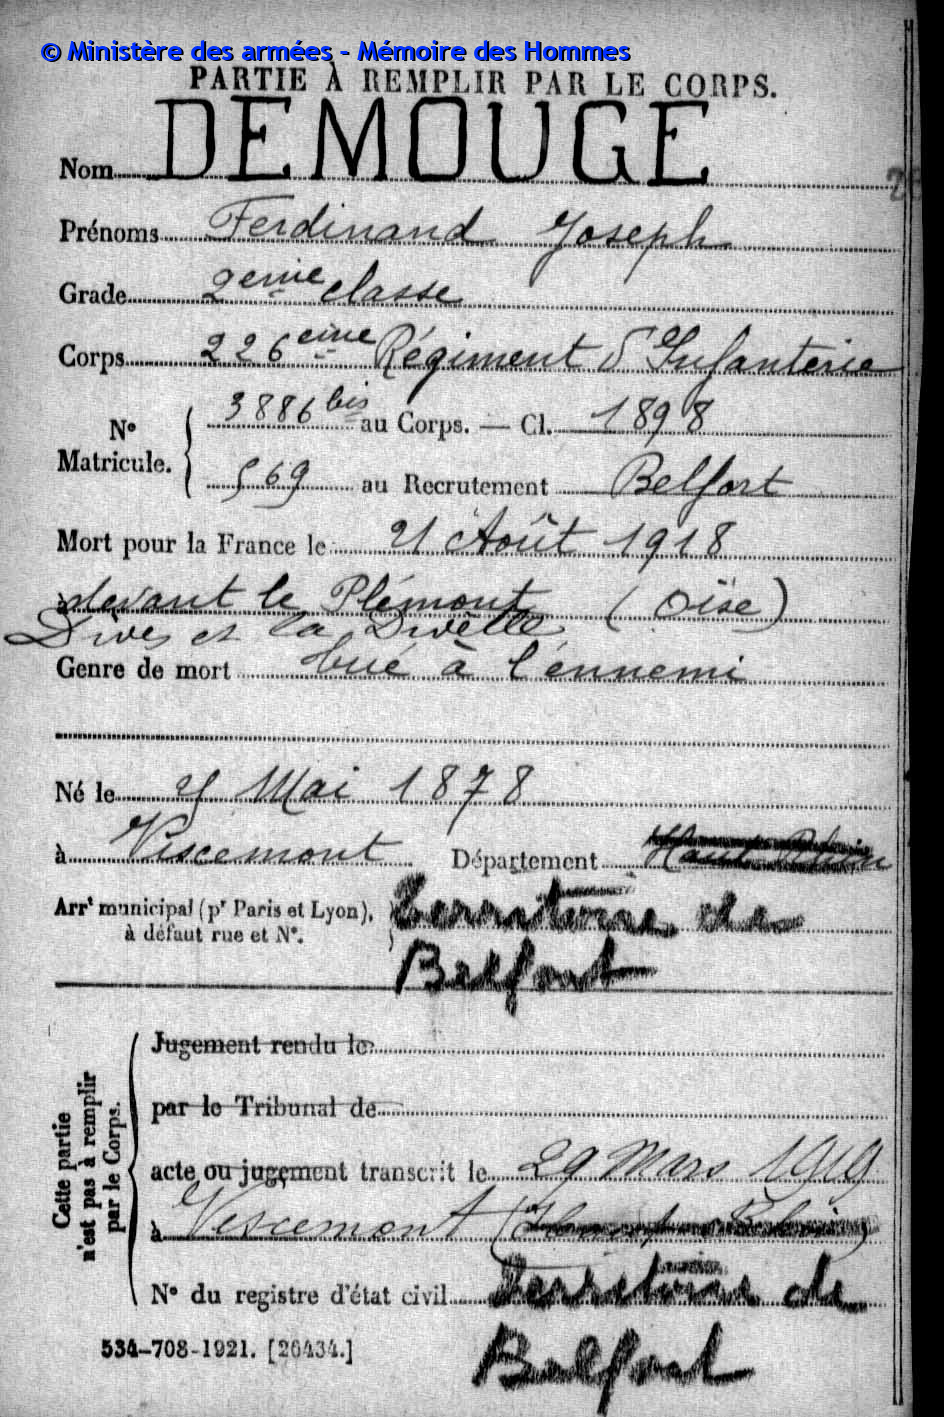 © Ministère des armées - Mémoire des Hommes
PARTIE À REMPLIR PAR LE CORPS.
Nom DEMOUGE
Prénoms Ferdinand Joseph
Grade 2eme classe
Corps 226eme Régiment d'Infanterie
N° Matricule. { 3886 bis au Corps. — Cl. 1898
569 au Recrutement Belfort
Mort pour la France le 21 Août 1918
à devant le Plémont (Oise)
Dives et la Divette
Genre de mort tué à l'ennemi
Né le Mai 1878
à Vescemont Département Haut Rhin
Arrt municipal (pr Paris et Lyon), Territoire de
à défaut rue et N°. Belfort
Cette partie n'est pas à remplir par le Corps.
Jugement rendu le
par le Tribunal de
acte ou jugement transcrit le 29 Mars 1919
à Vescemont (Haut Rhin)
N° du registre d'état civil Territoire de
Belfort
534-708-1921. [26434.]